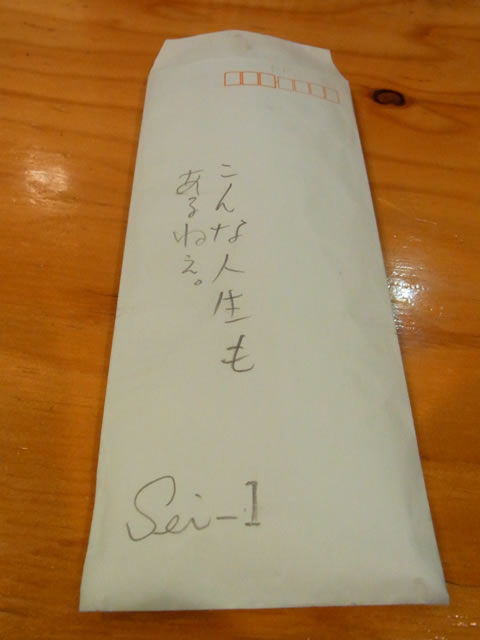 こんな人生も
あるねぇ。
Sei-1